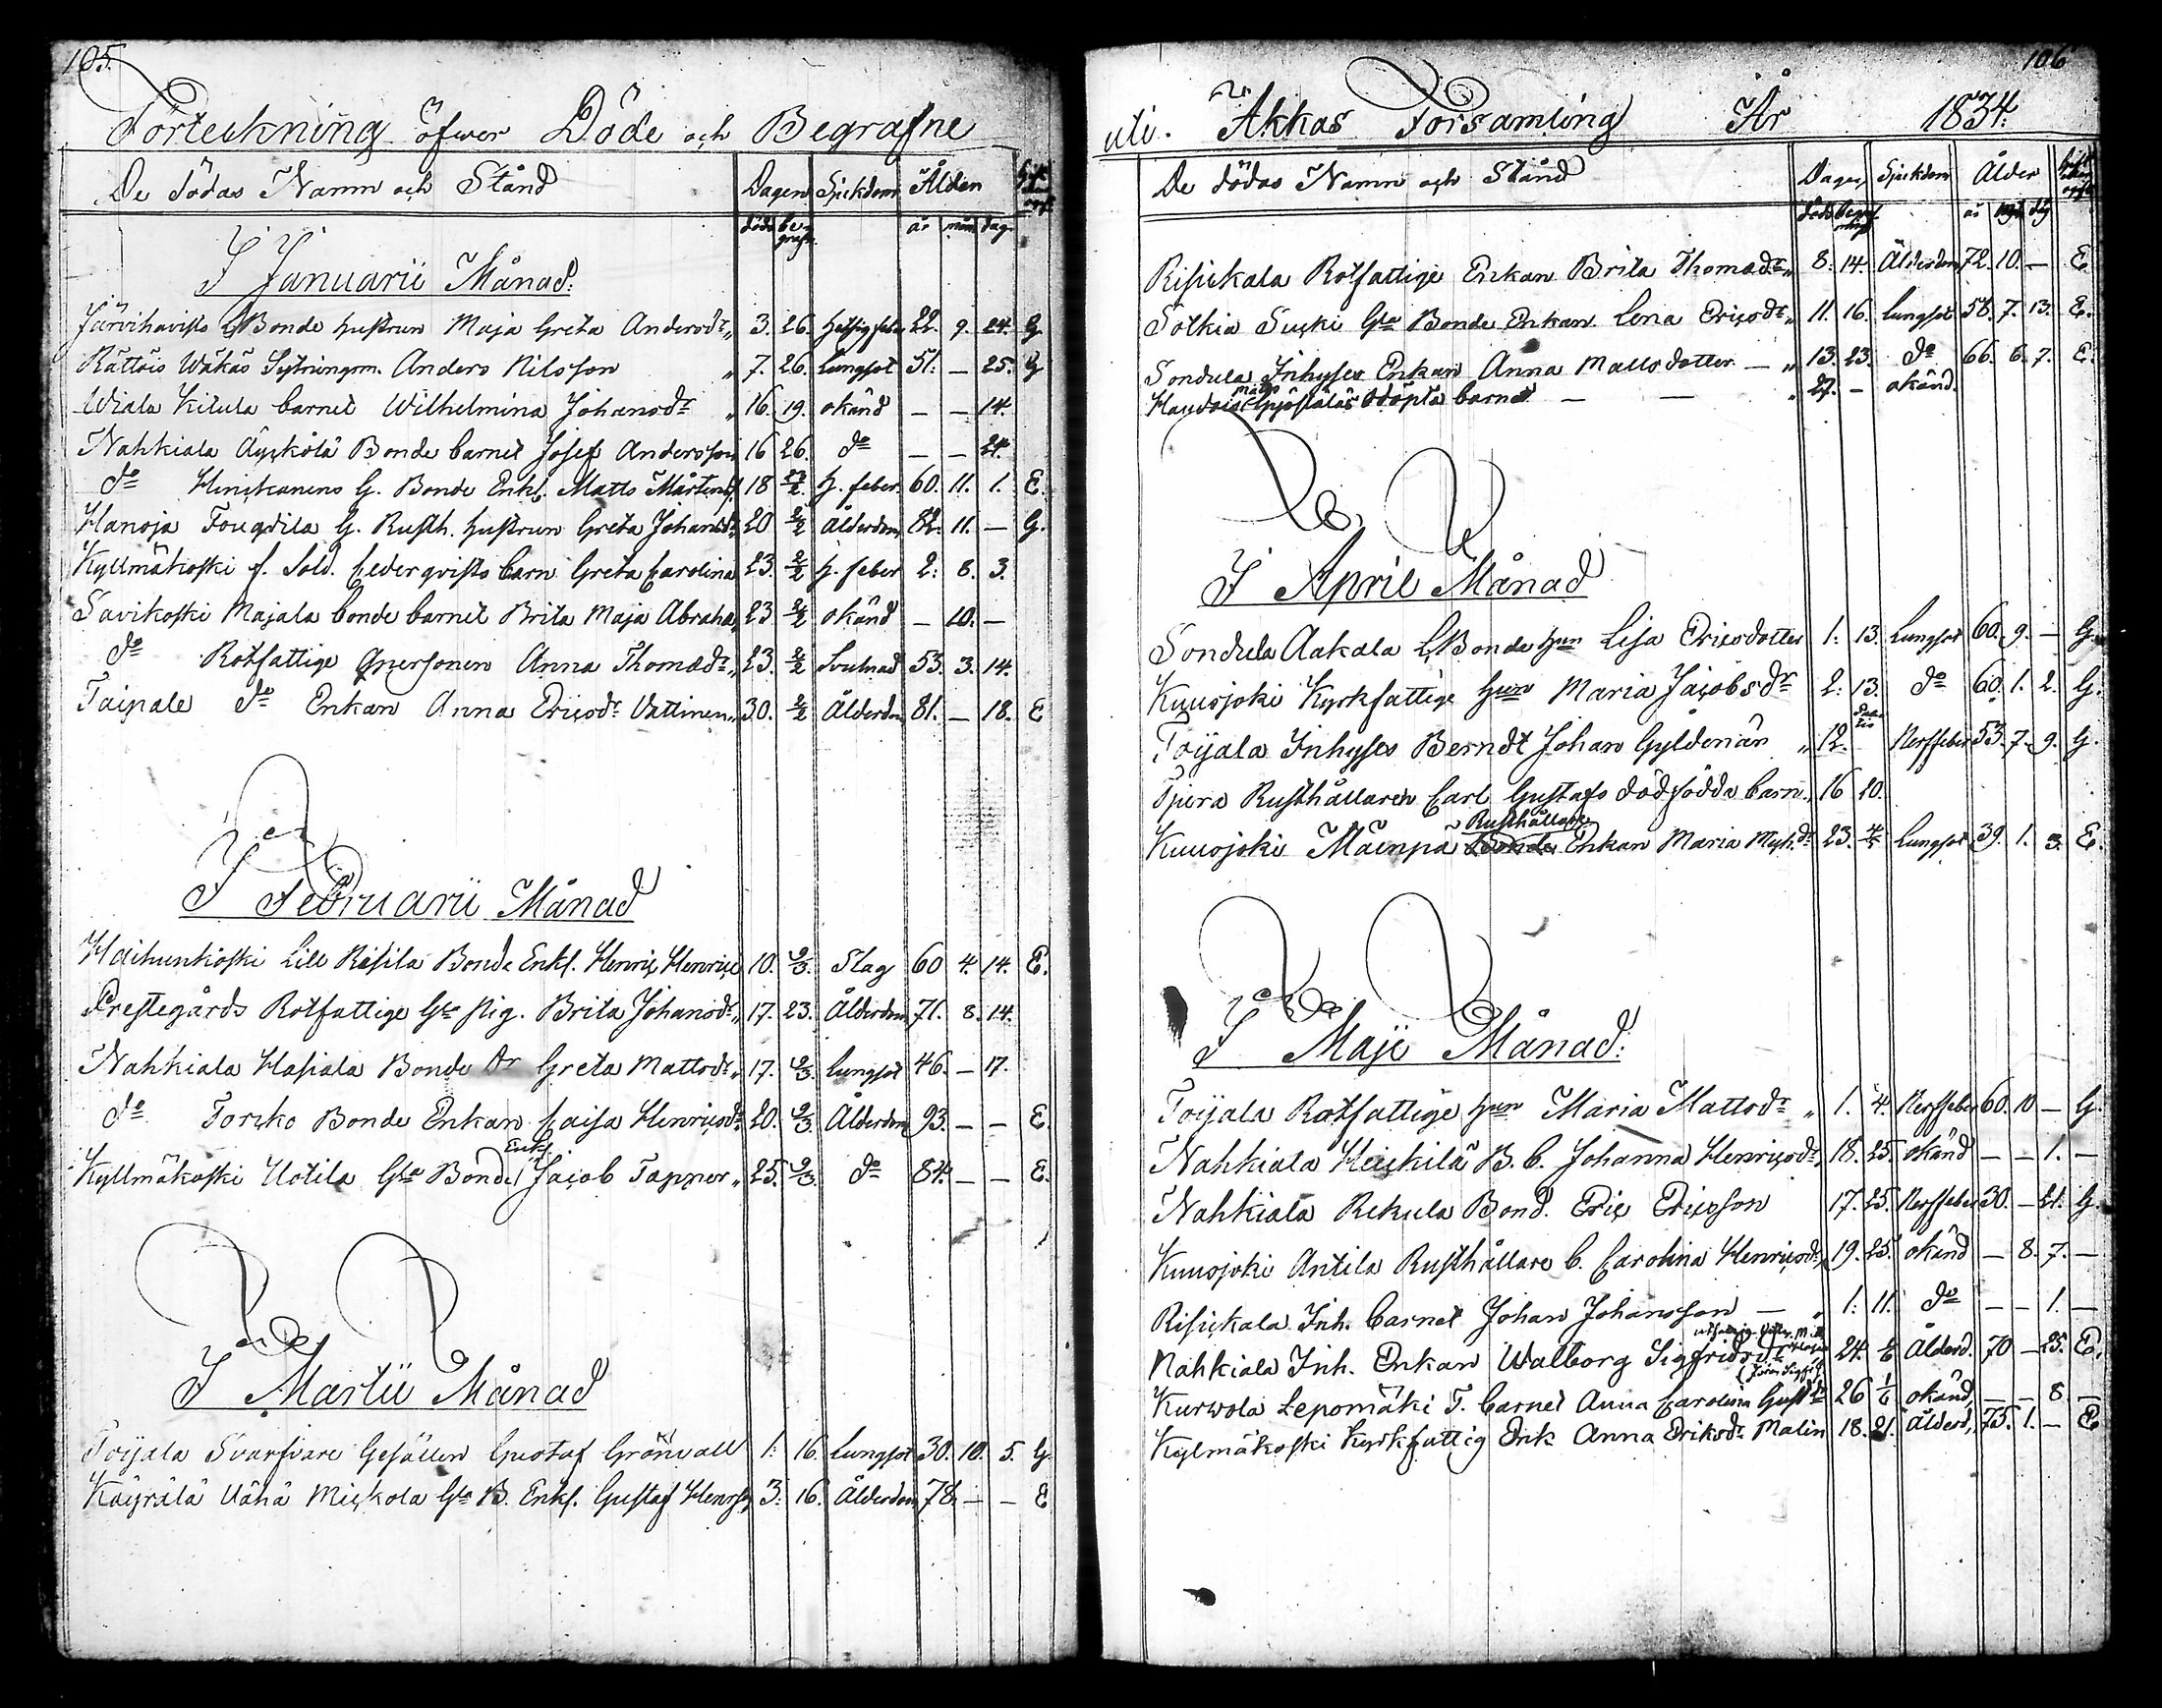 105.
Förteckning öfwer Döde och Begrafne
De dödas Namn och Stånd Dagen Sjukdom Ålder
död be-grafn. år mån dag.
I Januarii Månad.
Järvihavisto Bonde hustrun Maja Greta Andersdr 3. 26. Hetsig feber 22. 9. 24. G
Rättöis Wäkäs Sytningsm. Anders Nilsson 7. 26. Lungsot 51. — 25. G
Wiala Kitula barnet Wilhelmina Johansdr 16. 19. okänd — — 14.
Nahkiala Äyskölä Bonde barnet Josef Andersson 16 26. do — — 24.
do G. Bonde Enkl. Matts Mårtens 18 27/2. h. feber 60. 11. 1. E.
Hanoja G. Rusth. hustrun Greta Johansdr 20 2/2 Ålderdom 82. 11. — G.
Kyllmäkoski f. Sold. Cederqvists barn Greta Carolina 23. 2/2 h. feber 2. 8. 3.
Savikoski Majala bonde barnet Brita Maja Abraha 23 2/2 okänd — 10. —
do Rotfattige qpersonen Anna Thomædr 23. 2/2 Svulnad 53. 3. 14.
Taipale do Enkan Anna Ericsdr Vattinen 30. 2/2 Ålderdom 81. — 18. E
I Februarii Månad
Haihunkoski Lill Risila Bonde Enkl. Henric Henrics 10. 2/3. Slag 60 4. 14. E.
Prestegårds Rotfattige Gla pig. Brita Johansdr 17. 23. Ålderdom 71. 8. 14.
Nahkiala Hasiala Bonde dr Greta Mattsdr 17. 2/3. lungsot 46. — 17.
do Torcko Bonde Enkan Caisa Henricsdr 20. 2/3. Ålderdom 93. — — E.
Enkl.
Kyllmäkoski Uotila Gla Bonde Jacob Tapper 25. 2/3. do 84. — — E.
I Martii Månad
Toijala Svarfvare Gesällen Gustaf Grönvall 1. 16. Lungsot 30. 10. 5. G
Käyrälä Uähä Mickola Gla B. Enkl. Gustaf Henrs 3. 16. Ålderdom 78. — — E
106
uti. Akkas Församling År 1834.
De dödas Namn och Stånd Dagen Sjukdom Ålder
död begrafning år mån dag
Risickala Rotfattige Enkan Brita Thomædr 8. 14. Ålderdom 72. 10. — E.
Sotkia Sucki Gla Bonde Enkan Lena Ericsdr 11. 16. lungsot 58. 7. 13. E.
Sondula Inhyses Enkan Anna Matts dotter — 13. 23. do 66. 6. 7. E.
Matts odöpta barnet — — 27. — okänd.
I April Månad
Sondula Aakala Bonde hun Lisa Ericsdotter 1. 13. Lungsot 60. 9. — G.
Kuusjoki Kyrkfattige hun Maria Jacobsdr 2. 13. do 60. 1. 2. G.
Toijala Inhyses Berndt Johan Gyldenär 12. Nerffeber 53. 7. 9. G.
Rusthållaren Carl Gustafs dödfödda barn. 16 20.
Rusthållare
Kuusjoki Mäenpä Bonde Enkan Maria Mich.dr 23. 4/5 lungsot 39. 1. 3. E.
I Maji Månad.
Toijala Rotfattige hun Maria Mattsdr 1. 4. Nerffeber 60. 10 — G.
Nahkiala Heickilä B. b. Johanna Henricsdr 18. 25. okänd — — 1. —
Nahkiala Rekula Bond. Eric Ericsson 17. 25. Nerffeber 30. — 21. G.
Kuusjoki Antila Rusthållare b. Carolina Henricsdr 19. 25. okänd — 8. 7. —
Risickala Inh. barnet Johan Johansson — 1. 11. do — — 1. —
Nahkiala Inh. Enkan Walborg Sigfridsdr 24. 1/6 Ålderd. 70 — 25. E.
Kurvola Lepomäki T. barnet Anna Carolina Gustdr 26 1/6 okänd, — — 8 —
Kylmäkoski Kyrkfattig Enk Anna Eriksdr Malin 18. 21. ålderd, 75. 1. — E